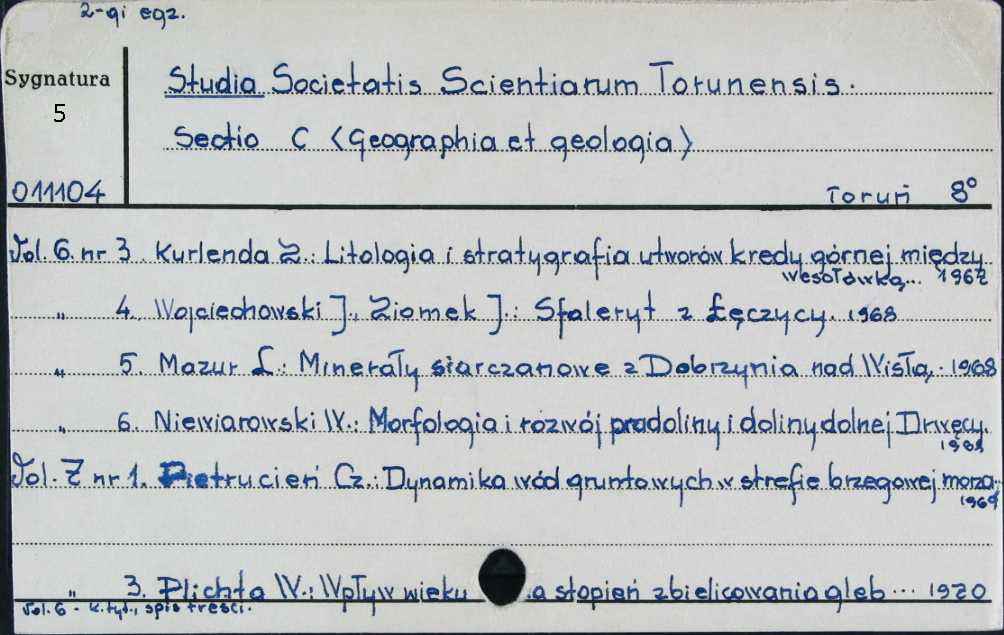 2-gi egz.
Sygnatura
5
011104
Studia Societatis Scientiarum Torunensis.
Sectio C <Geographia et geologia>
Toruń 8°
Vol. 6. nr 3. Kurlenda Z.: Litologia i stratygrafia utworów kredy górnej między
Wesołówką... 1967
" 4. Wojciechowski J., Ziomek J.: Sfaleryt z Łęczycy. 1968
" 5. Mazur L.: Minerały siarczanowe z Dobrzynia nad Wisłą. 1968
" 6. Niewiarowski W.: Morfologia i rozwój pradoliny i doliny dolnej Drwęcy.
Vol. 7 nr 1. Pietrucień Cz.: Dynamika wód gruntowych w strefie brzegowej morza.
1969
" 3. Plichta W.: Wpływ wieku a stopień zbielicowania gleb ... 1970
Vol. 6 - k. tyt., spis treści.